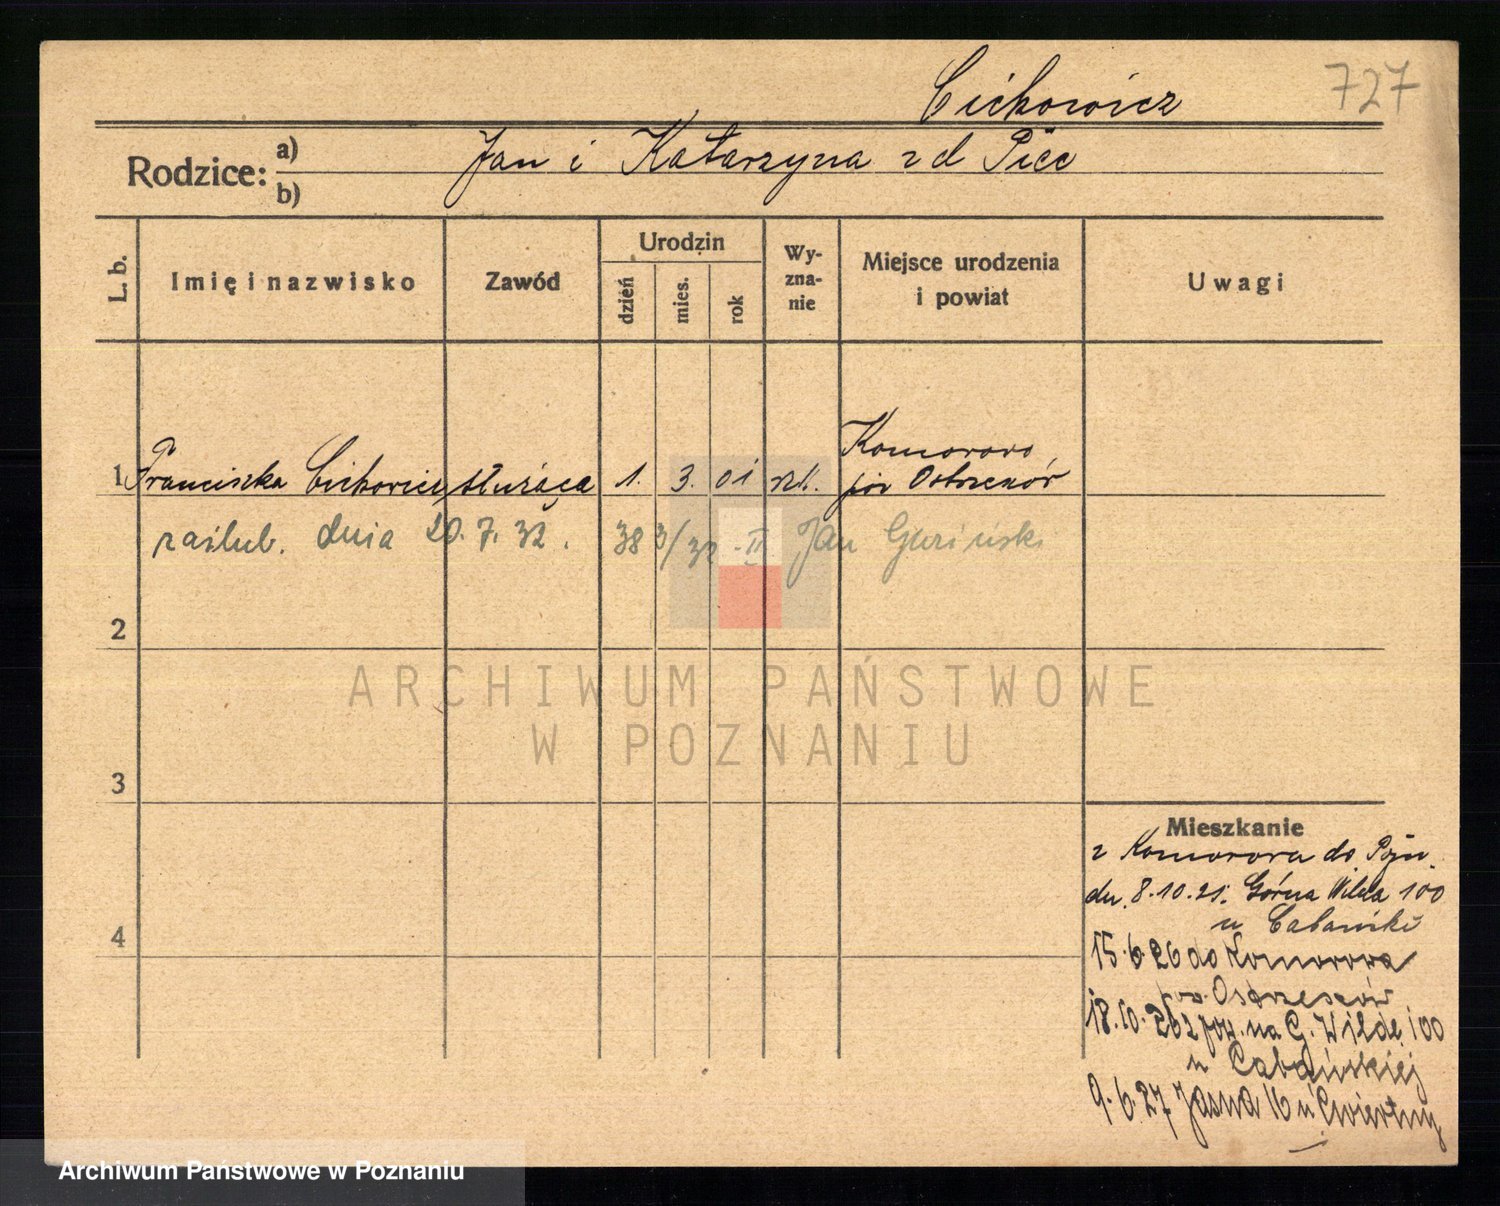 Cichowicz 727
Rodzice: a) Jan i Katarzyna z d Piec
b)
L. b. Imię i nazwisko Zawód Urodzin dzień mies. rok Wy-zna-nie Miejsce urodzenia i powiat Uwagi
Komorowo
1 Franciszka Cichowicz służąca 1. 3. 01 rzk. pow Ostrzeszów
zaślub. dnia 20.7.32. 38 3/32 -II Jan
2
ARCHIWUM PAŃSTWOWE
W POZNANIU
3
Mieszkanie
z Komorowa do Pozn.
dn. 8.10.21. Górna Wilda 100
4
u
15.6.26 do Komorowa
pow. Ostrzeszów
18.10.26 z pow. na G. Wildę 100
u Cabańskiej
9.6.27 Jasna 16 u
Archiwum Państwowe w Poznaniu